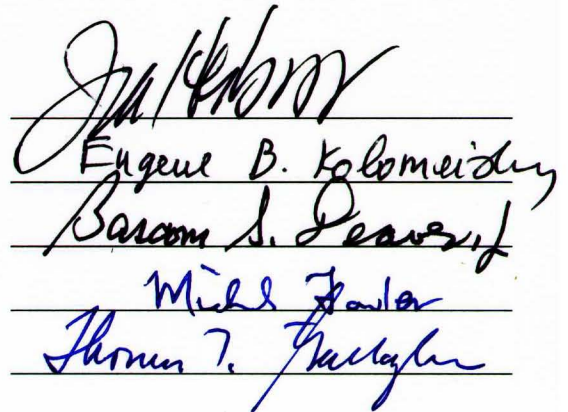 Eugene B. Kolomeisky
Bascom S. Deaver, Jr
Michael Fowler
Thomas F. Gallagher